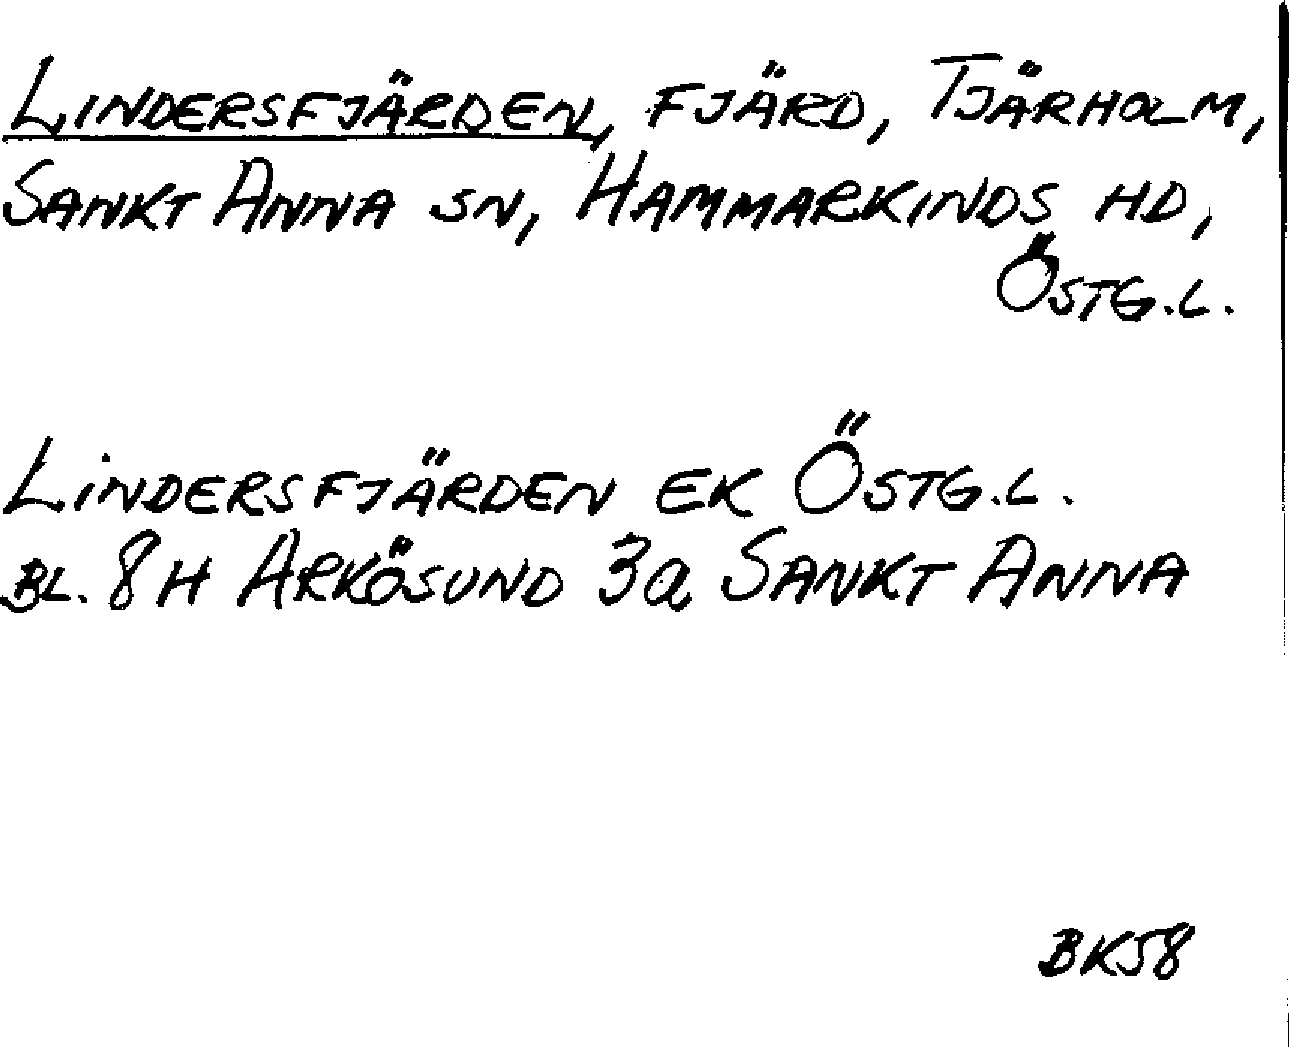 LINDERSFJÄRDEN, FJÄRD, TJÄRHOLM,
SANKT ANNA SN, HAMMARKINDS HD,
ÖSTG.L.
LINDERSFJÄRDEN EK ÖSTG.L.
BL. 8H ARKÖSUND 3a SANKT ANNA
BK58